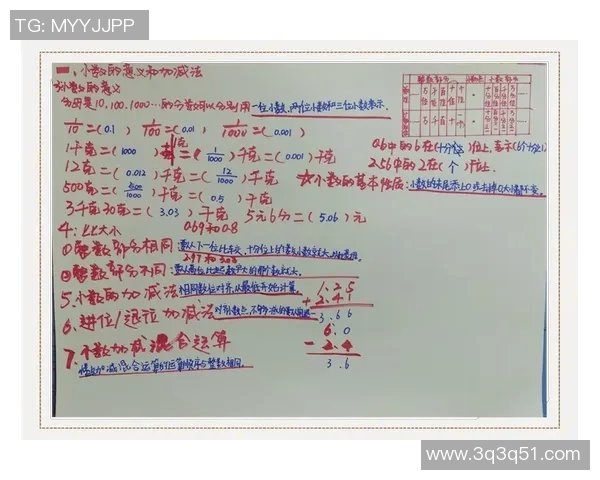 TG: MYYJJPP
一、小数的意义和加减法
小数的意义
分母是10、100、1000…的分数可以分别用一位小数、两位小数和三位小数表示.
1/10=(0.1) 1/100=(0.01) 1/1000=(0.001)
1千克=(1000)克 1克=(1/1000)千克=(0.001)千克
12克=(0.012)千克=(12/1000)千克
500克=(500/1000)千克=(0.5)千克
3千克30克=(3.03)千克 5元6分=(5.06)元
整数部分 小数点 小数部分
0.6中的6在(十分位)位上,表示(6个十分之一)
2.56中的2在(个)位上
☆小数的基本性质:小数的末尾添上0或去掉0,大小都不变。
4:比大小 0.69和0.8
①整数部分相同:
2.97和3.03
②整数部分不同:
5、小数的加减法 相同数位对齐,从最低位开始计算。
1.25
+2.41
3.66
6、进位/退位加减法
6.0
-2.4
3.6
7、小数加减混合运算
小数加减混合运算的运算顺序与整数相同。
www.3q3q51.com